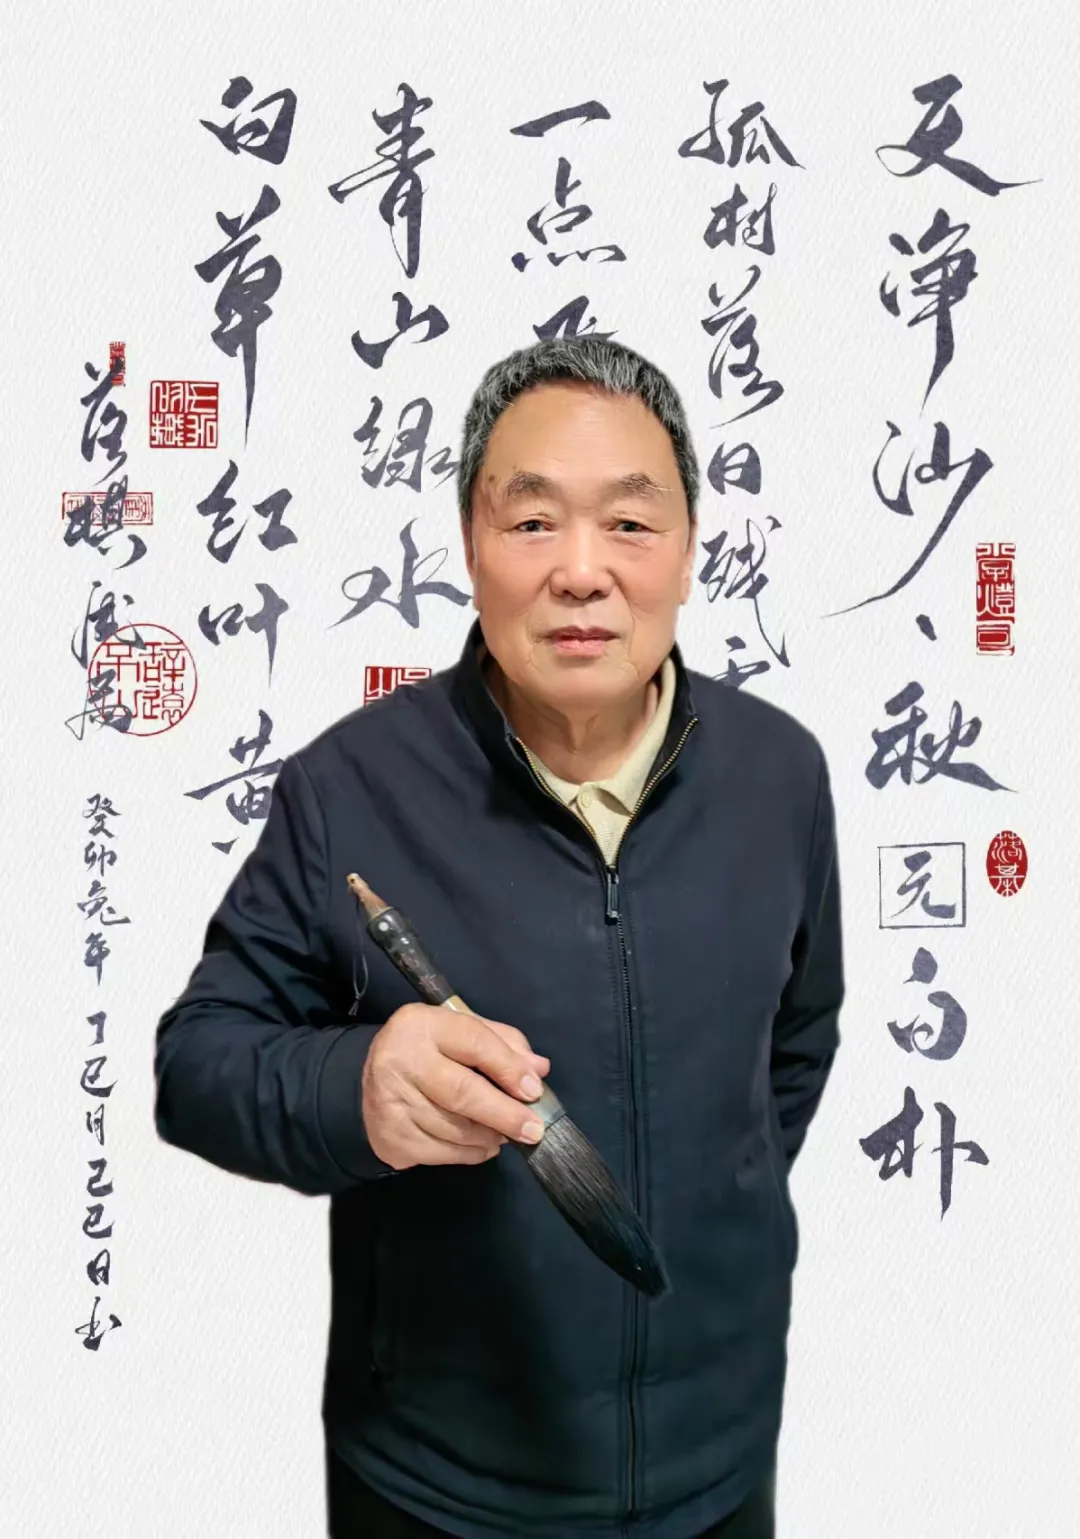 天净沙、秋 元 白朴
孤村落日残
一点飞
青山绿水
白草红叶黄
落棋
癸卯兔年丁巳月己巳日书